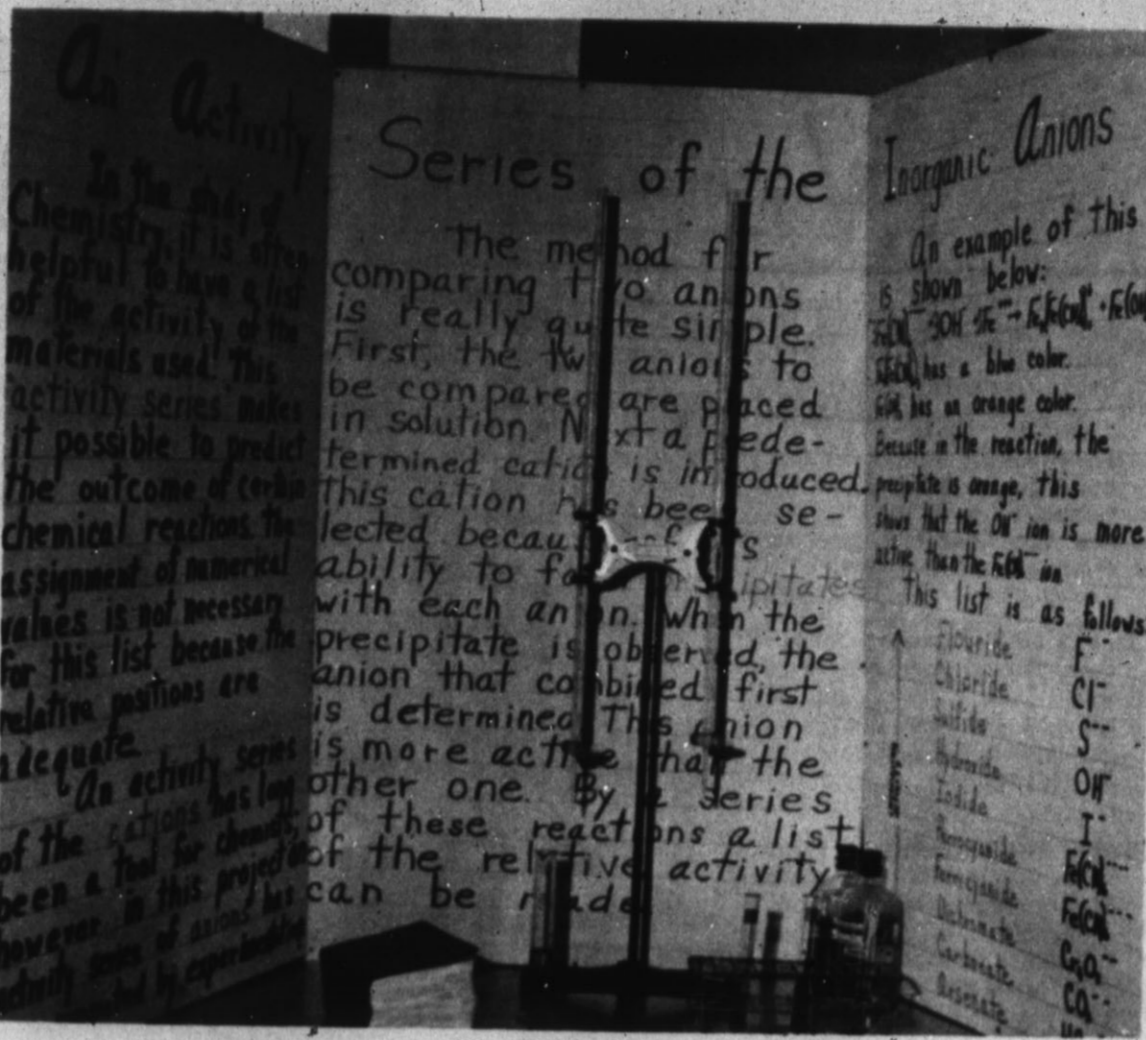 An Activity
In the study of
Chemistry, it is often
helpful to have a list
of the activity of the
materials used. This
activity series makes
it possible to predict
the outcome of certain
chemical reactions. The
assignment of numerical
values is not necessary
for this list because the
relative positions are
adequate.
An activity series
of the cations has long
been a tool for chemists,
however, in this project
activity series of anions has
by experimentation
Series of the
The method for
comparing two anions
is really quite simple.
First, the two anions to
be compared are placed
in solution. Next a prede-
termined cation is introduced.
This cation has been se-
lected because of its
ability to form precipitates
with each anion. When the
precipitate is observed, the
anion that combined first
is determined. This anion
is more active than the
other one. By a series
of these reactions a list
of the relative activity
can be made.
Inorganic Anions
An example of this
is shown below:
has a blue color.
has an orange color.
Because in the reaction, the
precipitate is orange, this
shows that the OH⁻ ion is more
active than the ion
This list is as follows
Flouride F⁻
Chloride Cl⁻
Sulfide S⁻⁻
Hydroxide OH⁻
Iodide I⁻
Ferrocyanide
Ferricyanide
Dichromate
Carbonate
Arsenate